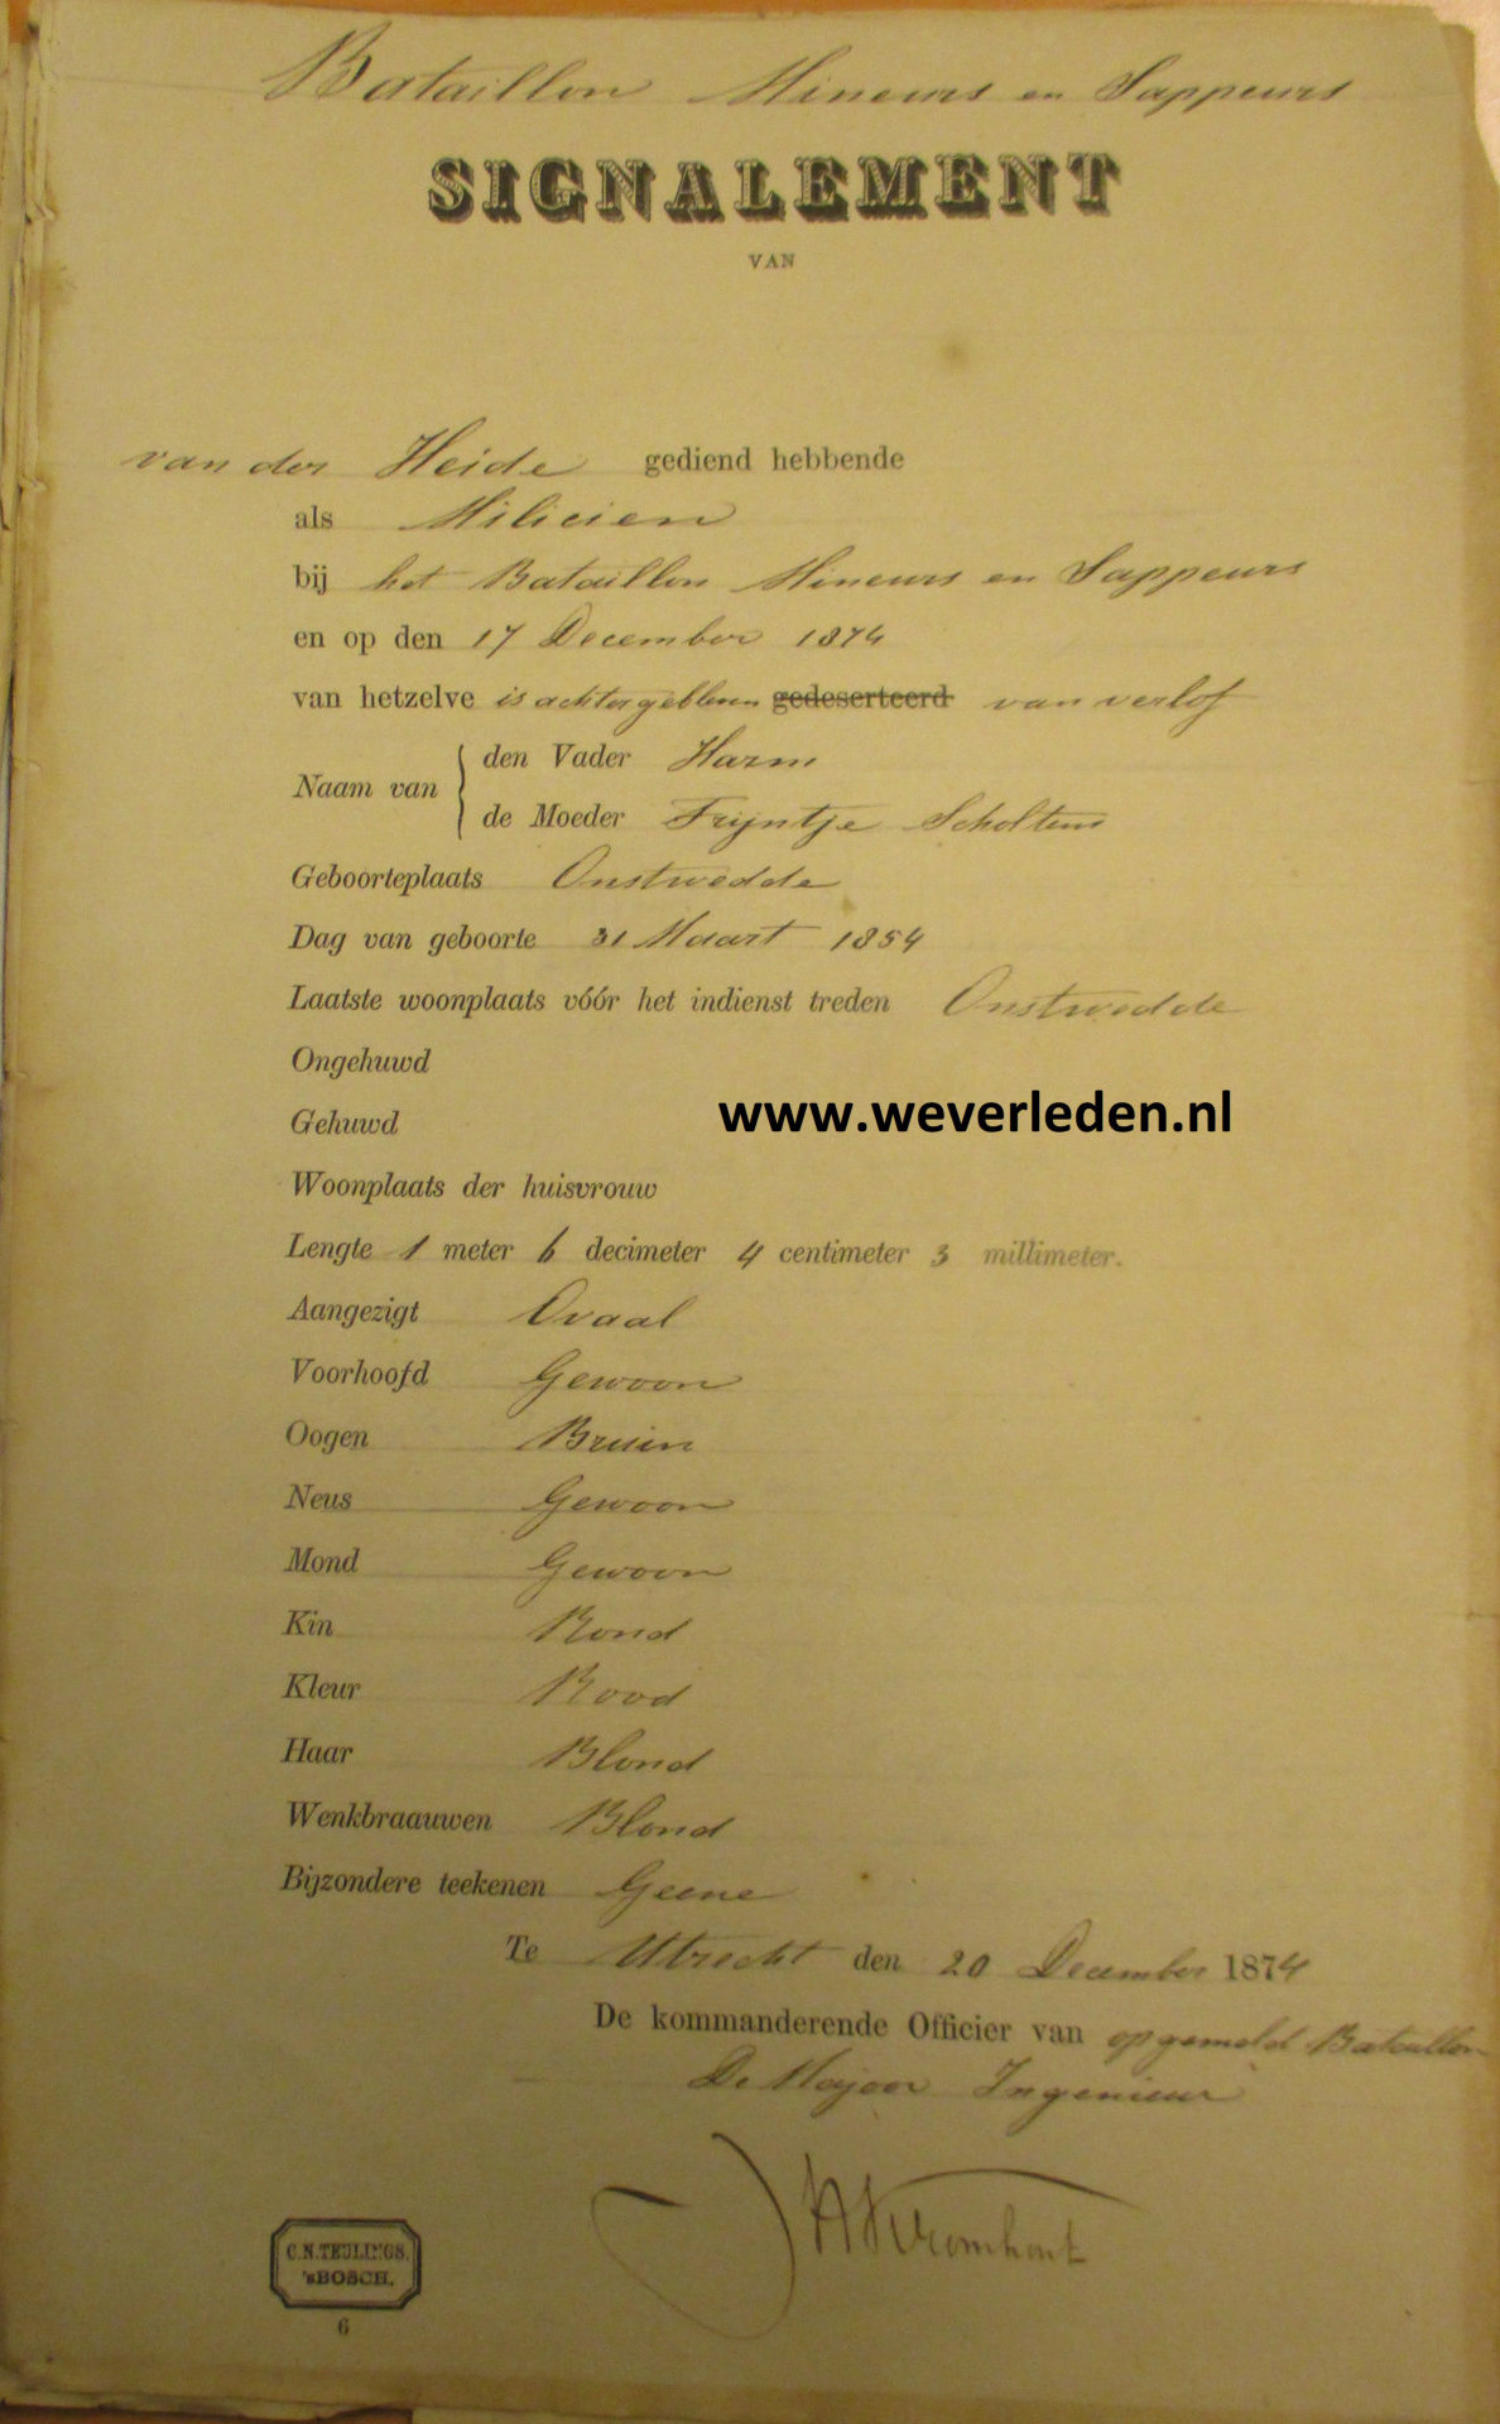 Bataillon Mineurs en Sappeurs
SIGNALEMENT
VAN
van der Heide gediend hebbende
als Milicien
bij het Bataillon Mineurs en Sappeurs
en op den 17 December 1874
van hetzelve is achtergebleven gedeserteerd van verlof
Naam van
den Vader Harm
de Moeder Trijntje Scholtens
Geboorteplaats Onstwedde
Dag van geboorte 31 Maart 1854
Laatste woonplaats vóór het indienst treden Onstwedde
Ongehuwd
Gehuwd
www.weverleden.nl
Woonplaats der huisvrouw
Lengte 1 meter 6 decimeter 4 centimeter 3 millimeter.
Aangezigt Ovaal
Voorhoofd Gewoon
Oogen Bruin
Neus Gewoon
Mond Gewoon
Kin Rond
Kleur Rood
Haar Blond
Wenkbraauwen Blond
Bijzondere teekenen Geene
Te Utrecht den 20 December 1874
De kommanderende Officier van opgemeld Bataillon
De Majoor Ingenieur
Kromhout
C.N.TEULINGS.
'sBOSCH.
6